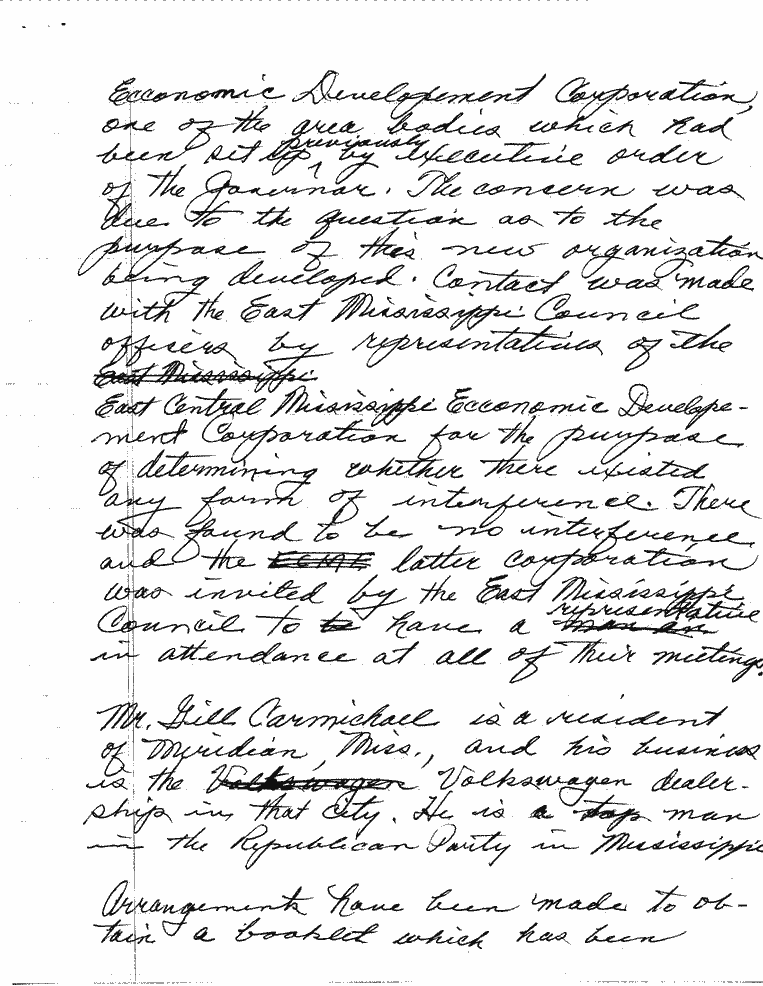 Ecconomic Developement Corporation,
one of the area bodies which had
been set up previously by executive order
of the Governor. The concern was
due to the question as to the
purpose of this new organization
being developed. Contact was made
with the East Mississippi Council
officers by representatives of the
East Mississippi
East Central Mississippi Ecconomic Develope-
ment Corporation for the purpose
of determining whether there existed
any form of interference. There
was found to be no interference
and the ECME latter corporation
was invited by the East Mississippi
Council to be have a man an representative
in attendance at all of their meetings.
Mr. Gill Carmichael is a resident
of Meridian, Miss., and his business
is the Volkswagen Volkswagen dealer-
ship in that city. He is a top man
in the Republican Party in Mississippi
Arrangements have been made to ob-
tain a booklet which has been